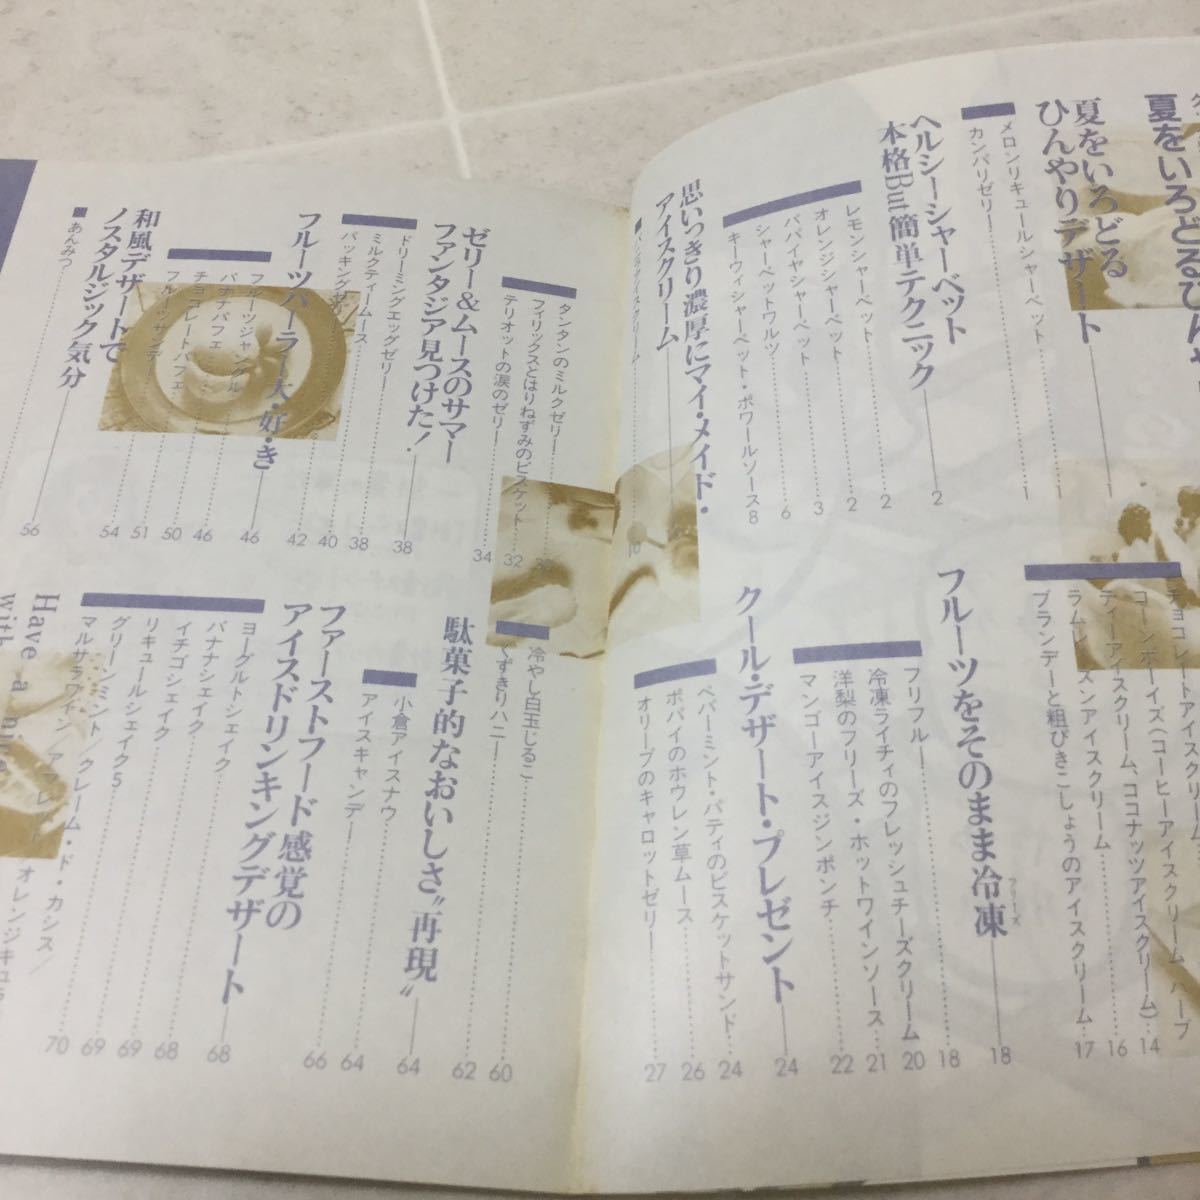 夏をいろどるひんや
夏をいろどる
ひんやりデザート 1
メロンリキュールシャーベット 1
カンパリゼリー 1
ヘルシーシャーベット
本格But簡単テクニック 2
レモンシャーベット 2
オレンジシャーベット 2
パパイヤシャーベット 3
シャーベットワルツ 6
キーウィシャーベット・ポワールソース 8
思いっきり濃厚にマイ・メイド・
アイスクリーム 10
チョコレートアイスクリーム ハーブ
コーンボーイズ(コーヒーアイスクリーム
ティーアイスクリーム、ココナッツアイスクリーム) 14
ラムレーズンアイスクリーム 16
ブランデーと粗びきこしょうのアイスクリーム 17
フルーツをそのまま冷凍 18
フリーズ
フリフル 18
冷凍ライチィのフレッシュチーズクリーム 20
洋梨のフリーズ・ホットワインソース 21
マンゴーアイスジンポンチ 22
クール・デザート・プレゼント 24
ペパーミント・パティのビスケットサンド 24
ポパイのホウレン草ムース 26
オリーブのキャロットゼリー 27
タンタンのミルクゼリー 30
フィリックスとはりねずみのビスケット 32
テリオットの涙のゼリー 34
ゼリー&ムースのサマー
ファンタジア見つけた! 38
ドリーミングエッグゼリー 38
ミルクティームース 40
パッキングゼリー 42
フルーツパーラー大・好・き 46
フルーツジャングル 46
バナナパフェ 50
チョコレートパフェ 51
フルーツサンデー 54
和風デザートで
ノスタルジック気分 56
■あんみつ
冷やし白玉しるこ 60
くずきりハニー 62
駄菓子的なおいしさ〝再現〟 64
小倉アイスナウ 64
アイスキャンデー 66
ファーストフード感覚の
アイスドリンキングデザート 68
ヨーグルトシェイク
バナナシェイク 68
イチゴシェイク 68
リキュールシェイク 69
グリーンミント/クレーム・ド・カシス/
マルサラワイン/アマレット/オレンジキュラ
70
Have a nice
with a